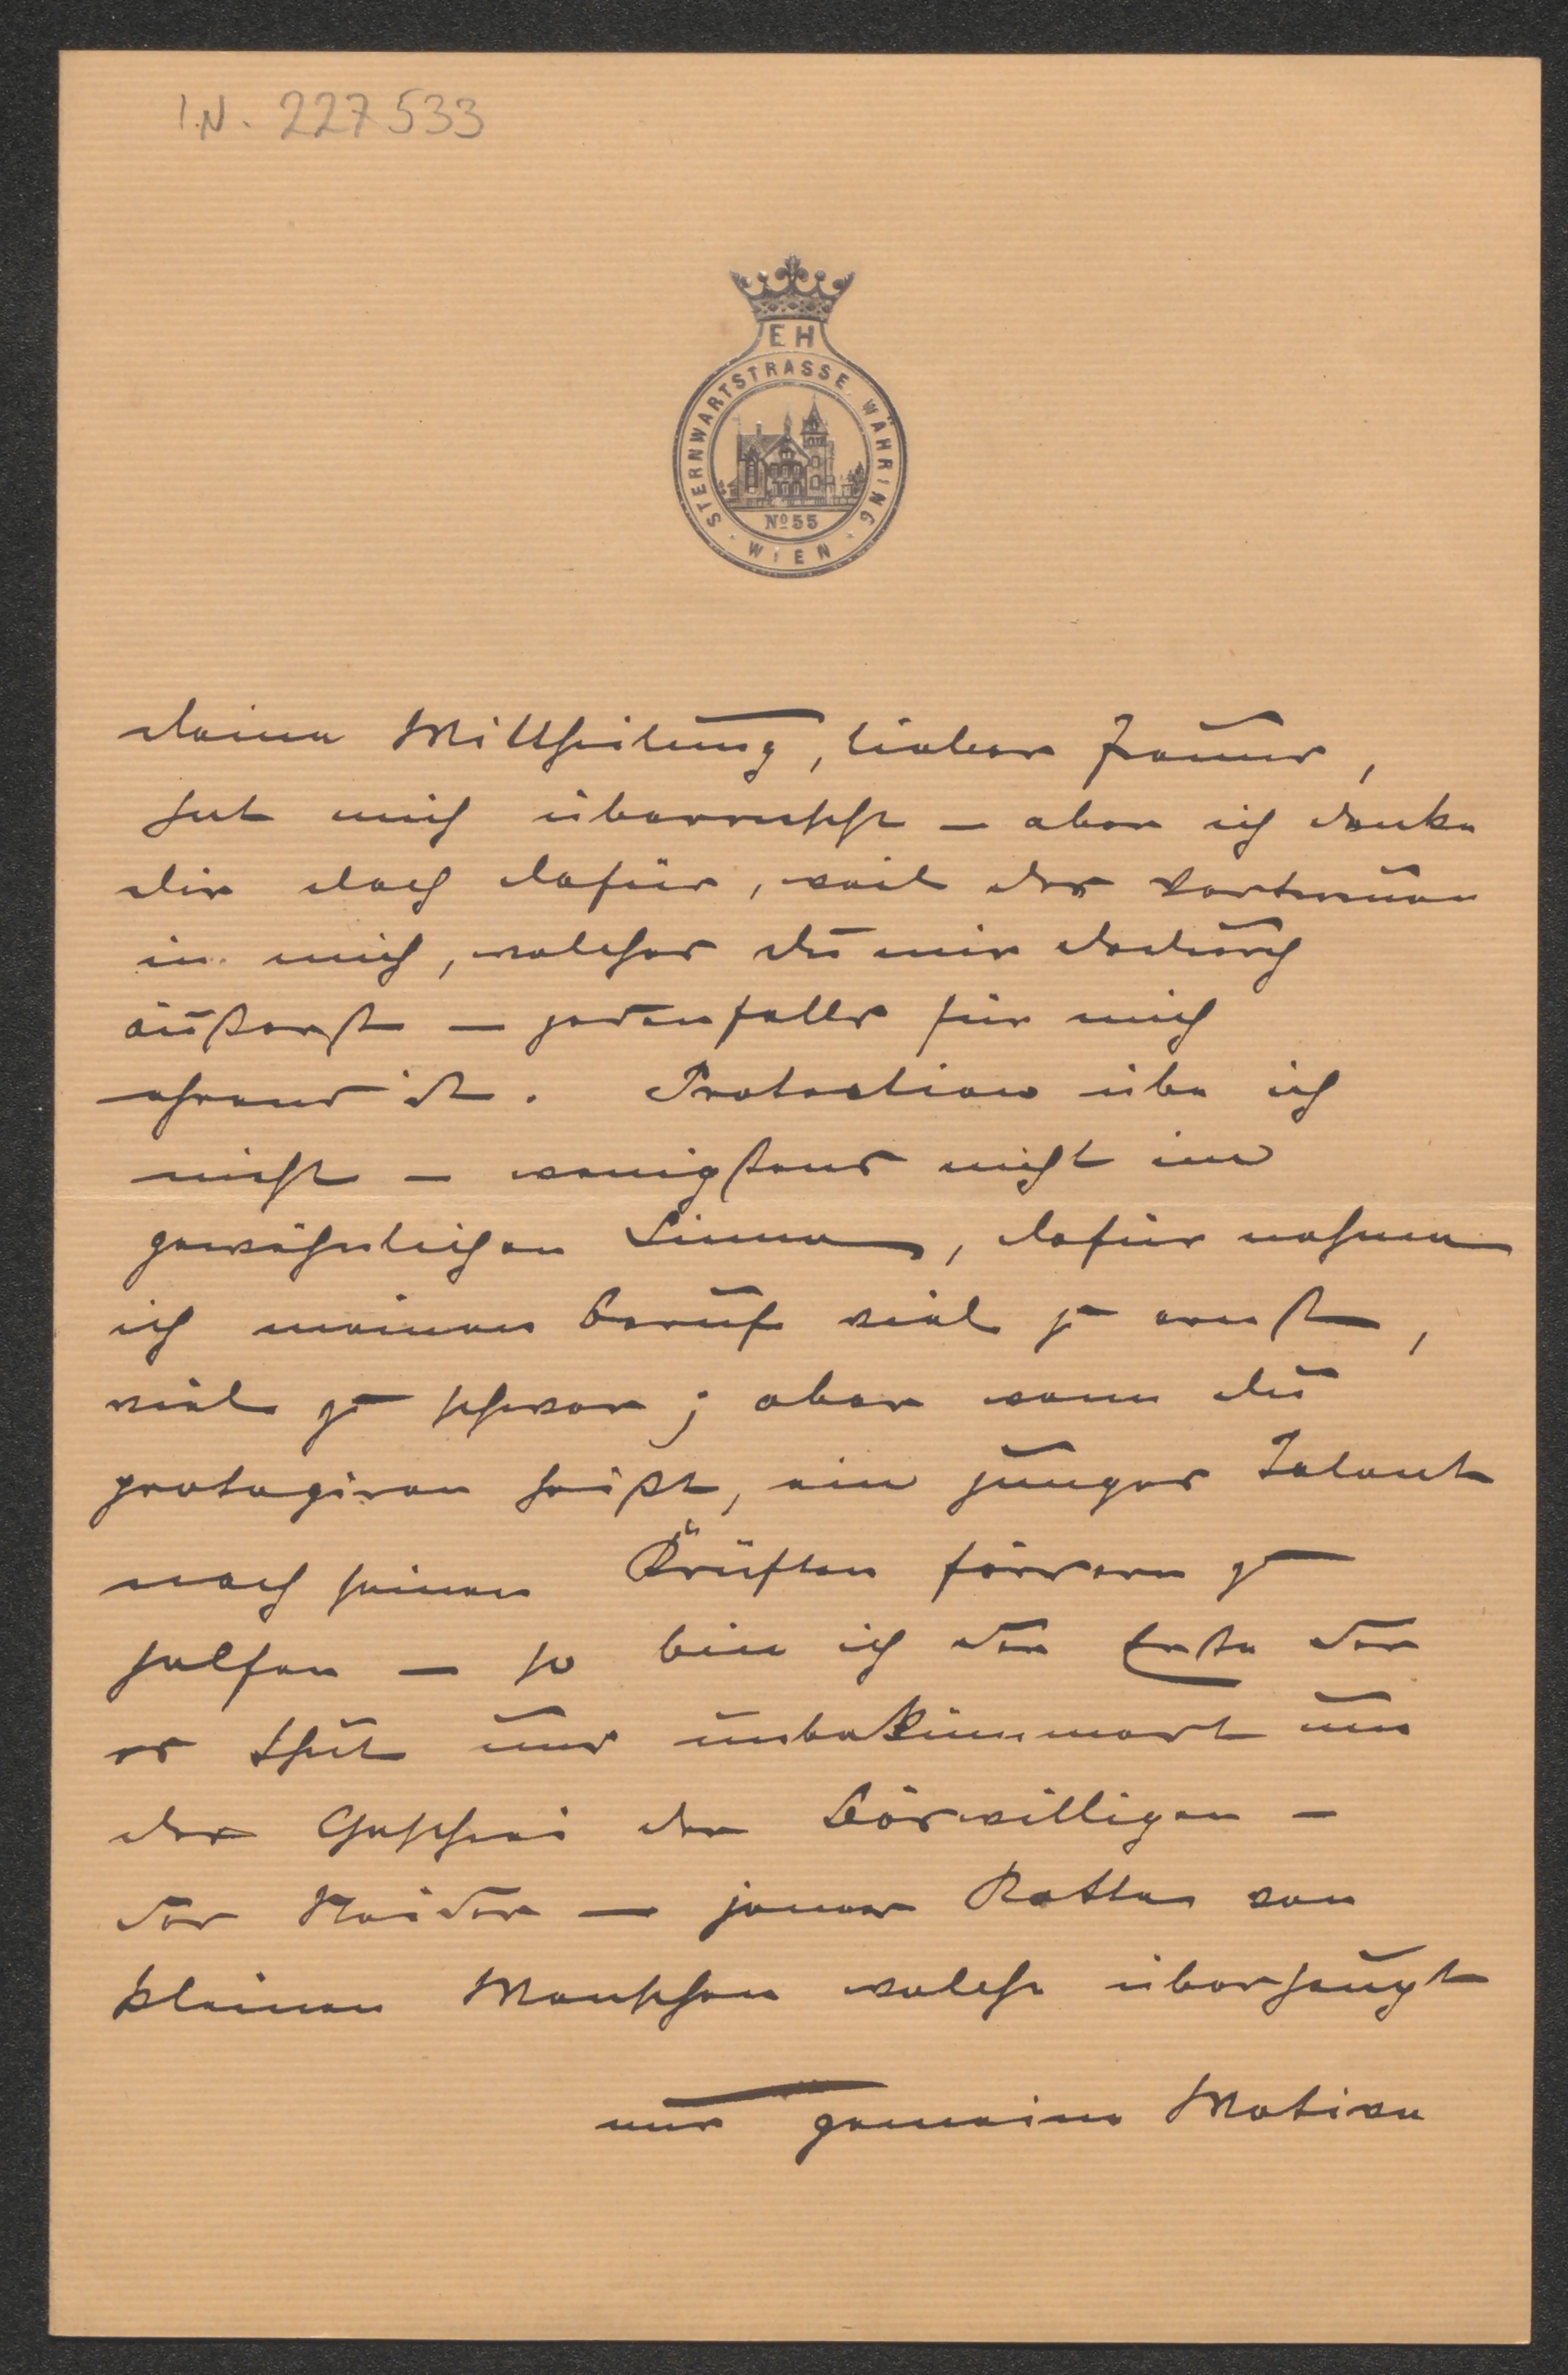 I.N. 227533
EH
STERNWARTSTRASSE WÄHRING
Nº 55
WIEN
deine Mittheilung, lieber Jauner,
hat mich überrascht – aber ich danke
dir doch dafür, weil das Vertrauen
in mich, welches du mir dadurch
äußerst – jedenfalls für mich
ehrend ist. Protection übe ich
nicht – wenigstens nicht im
gewöhnlichen Sinne, dafür nehme
ich meinen Beruf viel zu ernst,
viel zu schwer; aber wenn du
protegiren heißt, ein junges Talent
nach seinen Kräften fördern zu
helfen – so bin ich der Erste der
es thut und unbekümmert um
das Geschrei der Böswilligen –
der Neider – jener Rotte von
kleinen Menschen welche überzeugt
nur gemeine Motive